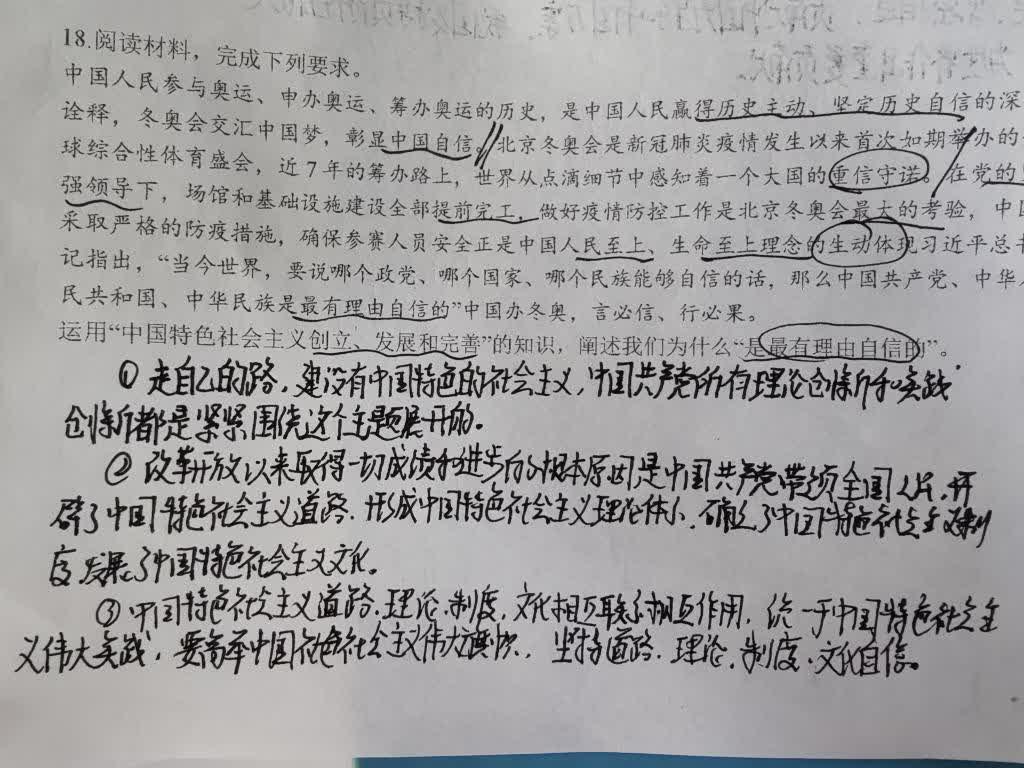 18.阅读材料，完成下列要求。
中国人民参与奥运、申办奥运、筹办奥运的历史，是中国人民赢得历史主动、坚定历史自信的深
诠释，冬奥会交汇中国梦，彰显中国自信。北京冬奥会是新冠肺炎疫情发生以来首次如期举办的
球综合性体育盛会，近7年的筹办路上，世界从点滴细节中感知着一个大国的重信守诺。在党的
强领导下，场馆和基础设施建设全部提前完工，做好疫情防控工作是北京冬奥会最大的考验，中
采取严格的防疫措施，确保参赛人员安全正是中国人民至上、生命至上理念的生动体现习近平总书
记指出，“当今世界，要说哪个政党、哪个国家、哪个民族能够自信的话，那么中国共产党、中华
民共和国、中华民族是最有理由自信的”中国办冬奥，言必信、行必果。
运用“中国特色社会主义创立、发展和完善”的知识，阐述我们为什么“是最有理由自信的”。
①走自己的路，建设有中国特色的社会主义，中国共产党所有理论创新和实践
创新都是紧紧围绕这个主题展开的。
②改革开放以来取得一切成绩和进步的根本原因是中国共产党带领全国人民，开
辟了中国特色社会主义道路.形成中国特色社会主义理论体系，确立了中国特色社会主义制
度发展了中国特色社会主义文化。
③中国特色社会主义道路.理论.制度，文化相互联系相互作用，统一于中国特色社会主
义伟大实践，要高举中国特色社会主义伟大旗帜，坚持道路.理论.制度.文化自信。